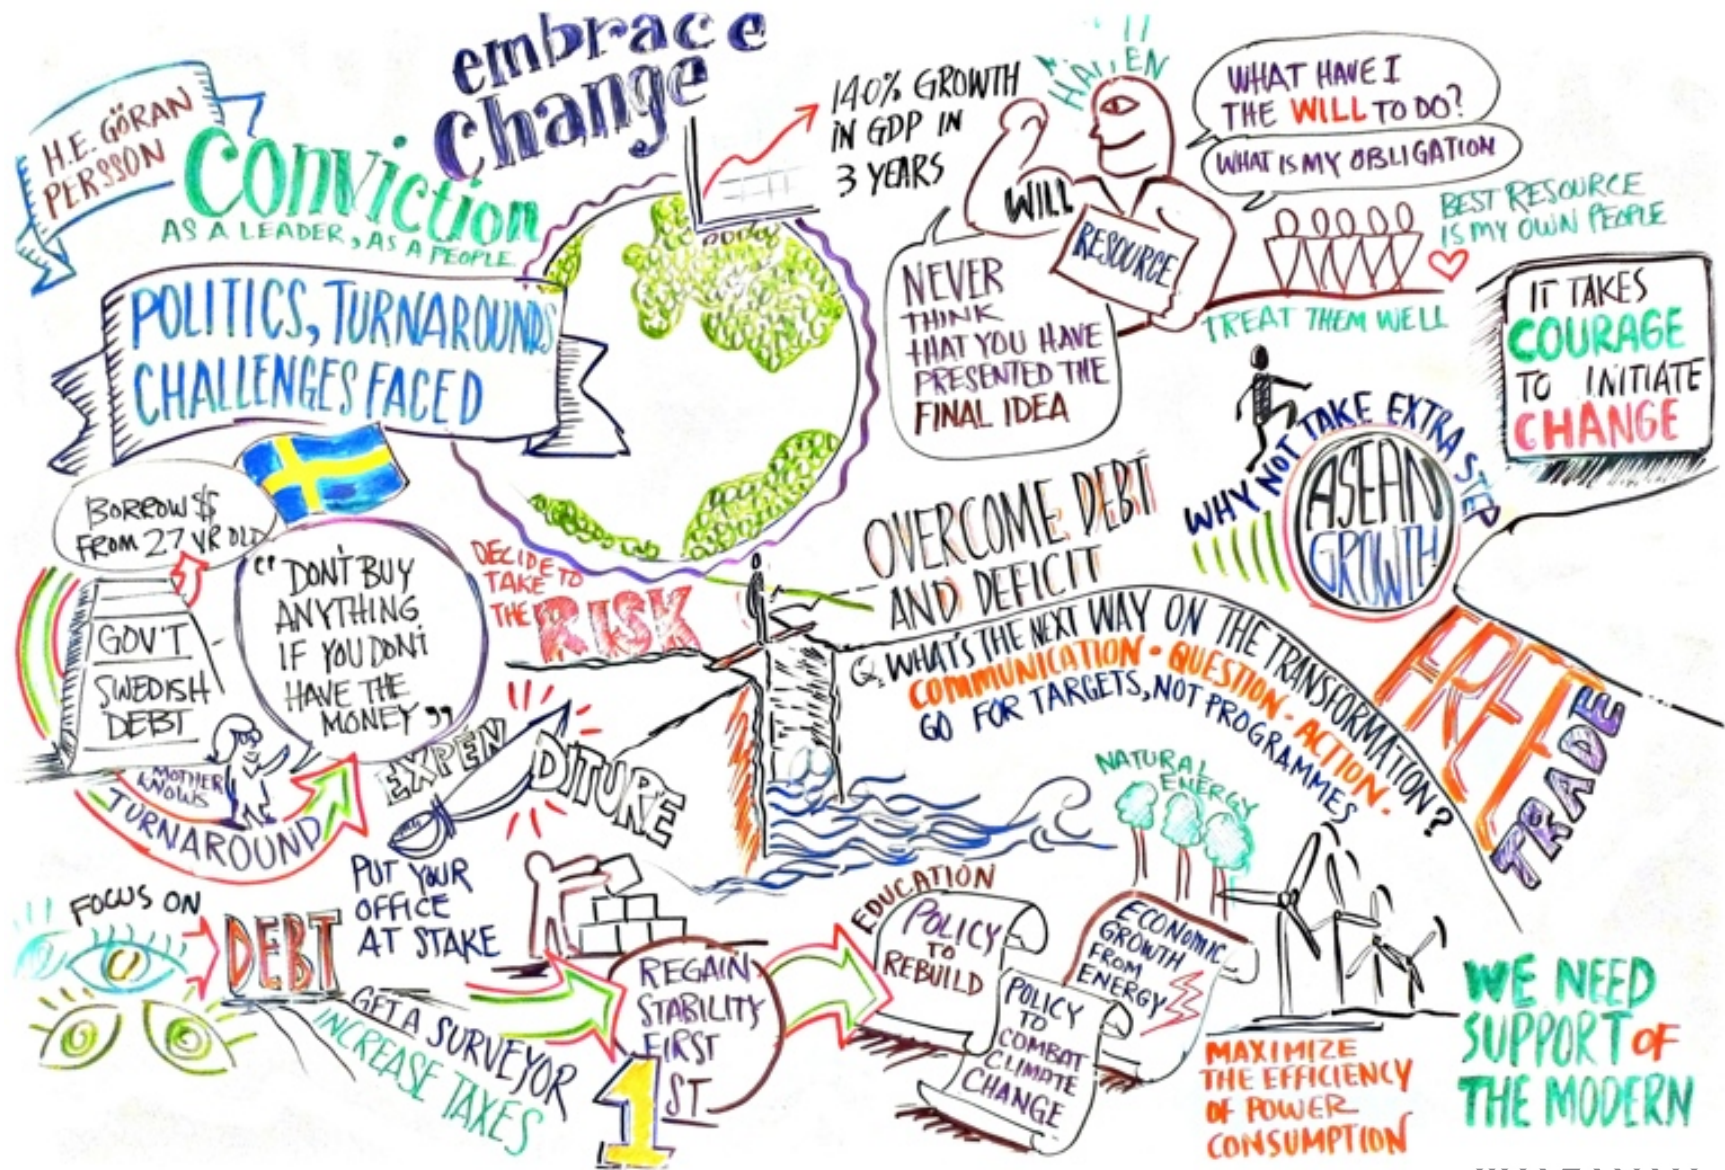 embrace
change
H.E. GÖRAN
PERSSON
Conviction
AS A LEADER, AS A PEOPLE
POLITICS, TURNAROUNDS
CHALLENGES FACED
140% GROWTH
IN GDP IN
3 YEARS
WILL
RESOURCE
WHAT HAVE I
THE WILL TO DO?
WHAT IS MY OBLIGATION
BEST RESOURCE
IS MY OWN PEOPLE
TREAT THEM WELL
NEVER
THINK
THAT YOU HAVE
PRESENTED THE
FINAL IDEA
IT TAKES
COURAGE
TO INITIATE
CHANGE
WHY NOT TAKE EXTRA STEP
ASEAN
GROWTH
FREE
TRADE
BORROW $
FROM 27 YR OLD
GOV'T
SWEDISH
DEBT
"DON'T BUY
ANYTHING
IF YOU DON'T
HAVE THE
MONEY"
MOTHER
KNOWS
TURNAROUND
DECIDE TO
TAKE
THE RISK
EXPENDITURE
OVERCOME DEBT
AND DEFICIT
Q. WHAT'S THE NEXT WAY ON THE TRANSFORMATION?
COMMUNICATION · QUESTION · ACTION.
GO FOR TARGETS, NOT PROGRAMMES
FOCUS ON
DEBT
PUT YOUR
OFFICE
AT STAKE
GET A SURVEYOR
INCREASE TAXES
REGAIN
STABILITY
FIRST
1ST
EDUCATION
POLICY
TO
REBUILD
POLICY
TO
COMBAT
CLIMATE
CHANGE
NATURAL
ENERGY
ECONOMIC
GROWTH
FROM
ENERGY
MAXIMIZE
THE EFFICIENCY
OF POWER
CONSUMPTION
WE NEED
SUPPORT OF
THE MODERN